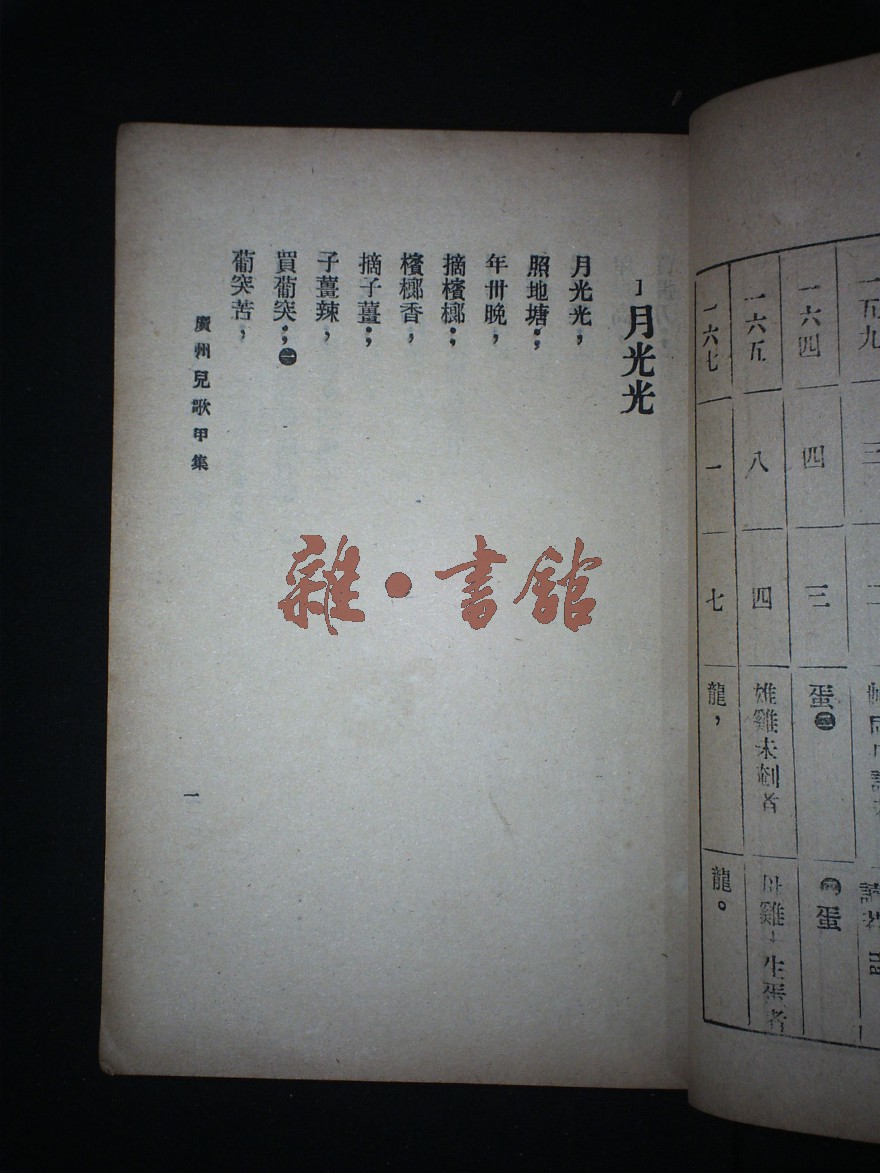 一五九 三
一六四 四 三 蛋 蛋
一六五 八 四 雄雞未者 母雞生蛋者
一六七 一 七 龍, 龍。
1 月光光
月光光,
照地塘;
年卅晚,
摘檳榔;
檳榔香,
摘子薑;
子薑辣,
買葡突;㊀
葡突苦,
廣州兒歌甲集 一
雜·書館